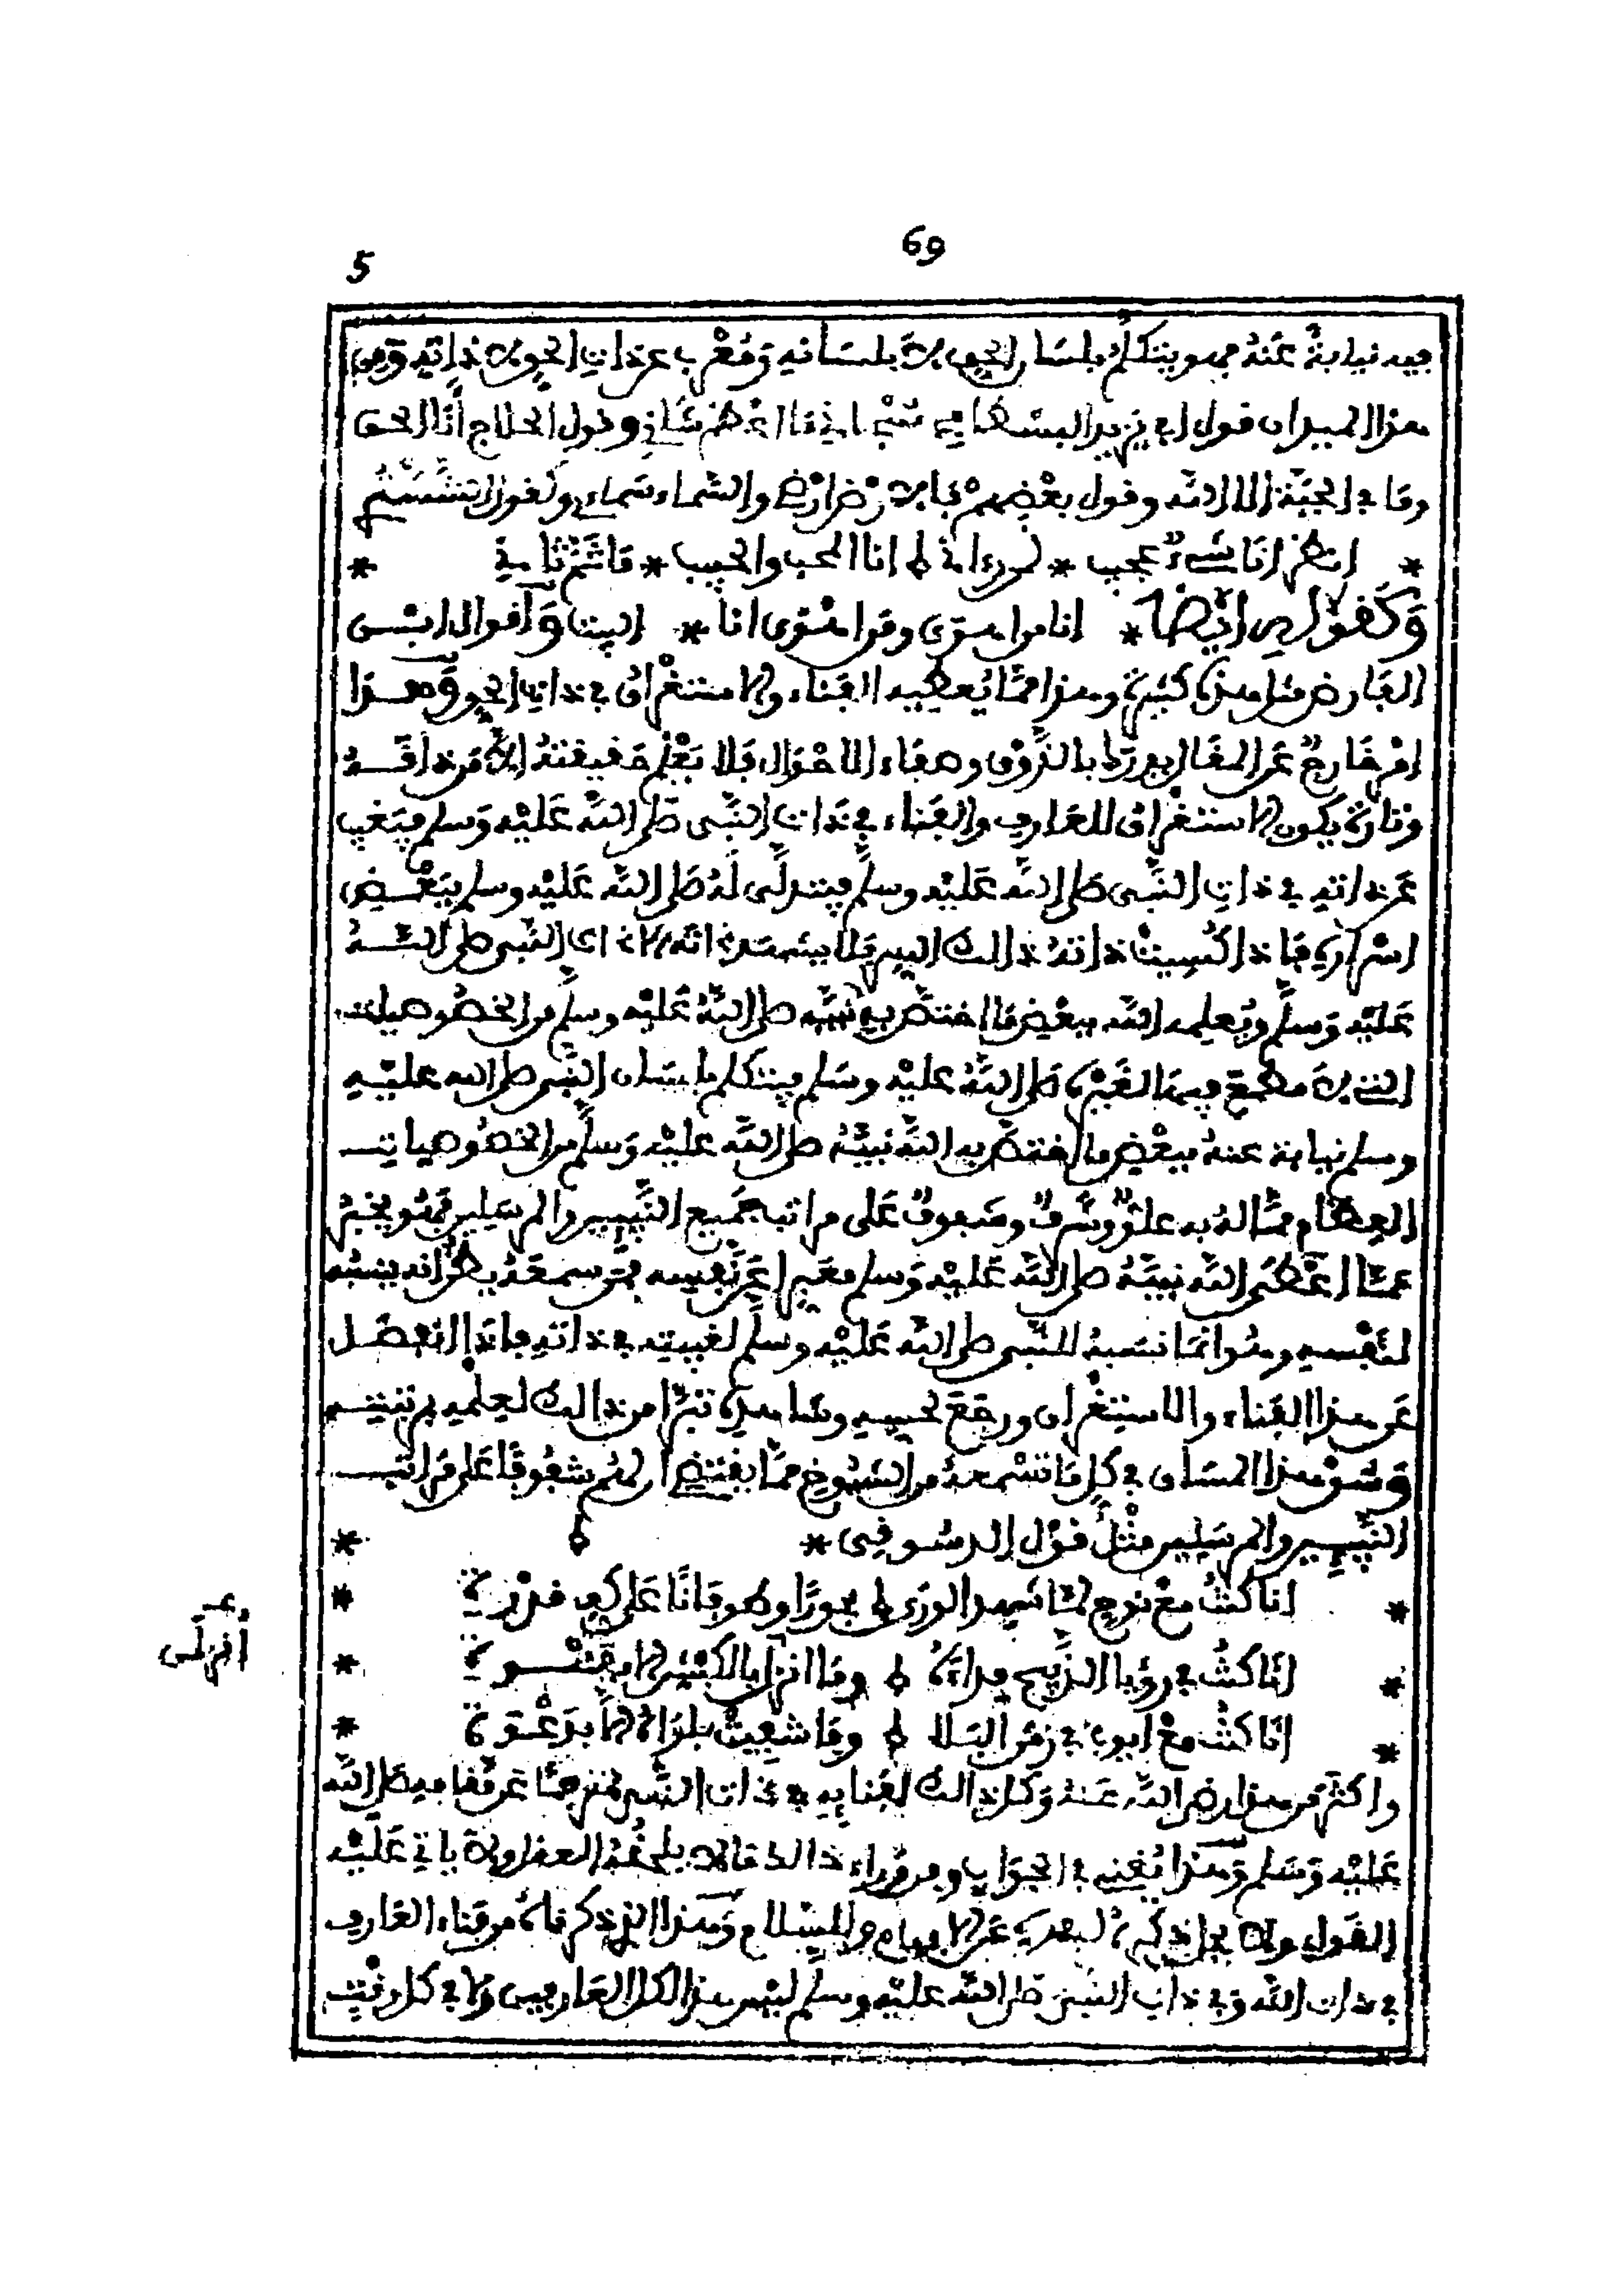 69
5
فيه نيابة عنه فهو يتكلم بلسان الحق لا بلسانه ومعرب عن ذات الحق لا عن ذاته ومن
هذا الميدان قول أبي يزيد البسطامي سبحاني ما أعظم شأني وقول الحلاج أنا الحق
وما في الجبة إلا الله وقول بعضهم فالأرض أرضي والسماء سمائي وكقول التستري
* انظر أنا شيء عجيب * لمن رءاني أنا المحب والحبيب * ما ثم ثاني *
وكقوله أيضا * أنا من اهوى ومن اهوى انا * البيت وأقوال ابن
الفارض مثل هذه كثيرة وهذا مما يعطيه الفناء والاستغراق في ذات الحق وهذا
امر خارج عن المقال يعرف بالذوق وصفاء الاحوال فلا يعلم حقيقته إلا من ذاقه
وتارة يكون الاستغراق للعارف والفناء في ذات النبي صلى الله عليه وسلم فيغيب
عن ذاته في ذات النبي صلى الله عليه وسلم فيتدلى له صلى الله عليه وسلم ببعض
اسراره فإذا كسيت ذاته ذالك السر فلا يشهد ذاته الا ذات النبي صلى الله
عليه وسلم ويعلمه الله ببعض ما اختص به نبيه صلى الله عليه وسلم من الخصوصيات
التي لا مطمع فيها لغيره صلى الله عليه وسلم فيتكلم بلسان النبي صلى الله عليه
وسلم نيابة عنه ببعض ما اختص به الله نبيه صلى الله عليه وسلم من الخصوصيات
العظام مما له به علو وشرف وشفوف على مراتب جميع النبيين والمرسلين فهو يخبر
عما اعطى الله نبيه صلى الله عليه وسلم معبرا عن نفسه فمن سمعه يظن انه ينسبه
لنفسه وهو انما نسبه للنبي صلى الله عليه وسلم لغيبته في ذاته فإذا انفصل
عن هذا الفناء والاستغراق ورجع لحسه وشاهده تبرأ من ذالك لعلمه بمرتبته
وسر هذا المساق في كل ما تسمعه من الشيوخ مما يقتضي أن لهم شفوفا على مراتب
النبيين والمرسلين مثل قول الدسوقي *
* انا كنت مع نوح لما شهد الورى بحورا وطوفانا على كف قدرة *
* انا كنت في رؤيا الذبيح فداءه وما انزل بالكبش الا بفتوة *
* انا كنت مع أيوب في زمن البلا وما شفيت بلواه إلا بدعوة *
واكثر من هذا رضي الله عنه وكل ذالك لفنائه في ذات النبي فترجم عن فا فيه صلى الله
عليه وسلم وهذا يغني في الجواب ومن وراء ذالك مالا يلحقه العقل ولا ياتي عليه
القول ولا يحل ذكره لبعده عن الافهام والسلام وهذا الذي ذكرناه من فناء العارف
في ذات الله وفي ذات النبي صلى الله عليه وسلم ليس هذا لكل العارفين ولا في كل وقت